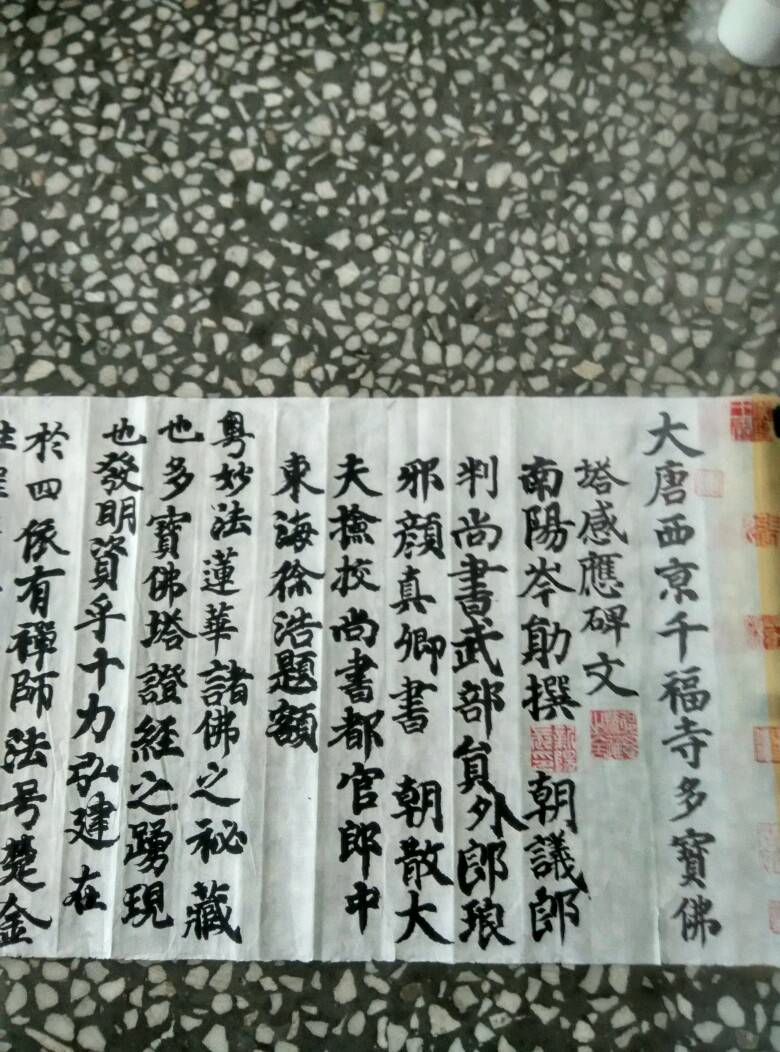 大唐西京千福寺多寳佛
塔感應碑文
南陽岑勛撰 朝議郎
判尚書武部貟外郎琅
邪顔真卿書 朝散大
夫撿挍尚書都官郎中
東海徐浩題額
粵妙法蓮華諸佛之祕藏
也多寳佛塔證經之踴現
也發明資乎十力弘建在
於四依有禪師法号楚金